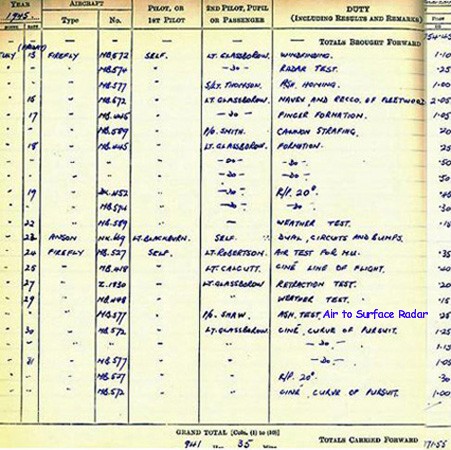 YEAR AIRCRAFT PILOT, OR 1ST PILOT 2ND PILOT, PUPIL OR PASSENGER DUTY (INCLUDING RESULTS AND REMARKS)
1945. Type No.
TOTALS BROUGHT FORWARD
13 FIREFLY MB.572 SELF. LT. GLASSBOROW. WINDFINDING. 1·10
" MB.574 " -DO- RADAR TEST. ·25
" MB.577 " S/LT. THOMSON. HOMING. 1·05
" MB.572 " LT. GLASSBOROW. NAVEX, AND RECCO. OF FLEETWOOD 2·05
17 " " -DO- FINGER FORMATION.
" MB.589 " P/O. SMITH. CANNON STRAFING. ·20
18 " MB.445 " LT. GLASSBOROW. FORMATION. ·25
" " " -DO- -DO- ·50
" " " -DO- -DO- ·50
19 " " -DO- R/P. 20°.
" " -DO- -DO- ·30
22 " MB.589 " — WEATHER TEST. ·15
23 ANSON LT. BLACKBURN. SELF. DUAL, CIRCUITS AND BUMPS.
24 FIREFLY MB.527 SELF. LT. ROBERTSON. AIR TEST FOR M.U. ·35
25 " " LT. CALCUTT. CINÉ LINE OF FLIGHT. ·40
27 " Z.1830 " LT. GLASSBOROW RETRACTION TEST. ·20
29 " " — WEATHER TEST. ·15
" MB.577 " P/O. SHAW. ASH. TEST. Air to Surface Radar ·25
30 " MB.572 " LT. GLASSBOROW. CINÉ, CURVE OF PURSUIT. 1·25
" " -DO- 1·15
31 " MB.577 " -DO- 1·05
" MB.527 " R/P. 20°. ·30
" MB.572 " CINÉ, CURVE OF PURSUIT. 1·00
GRAND TOTAL [Cols. (1) to (10)]
941 Hrs. 35 Mins. TOTALS CARRIED FORWARD 171·55